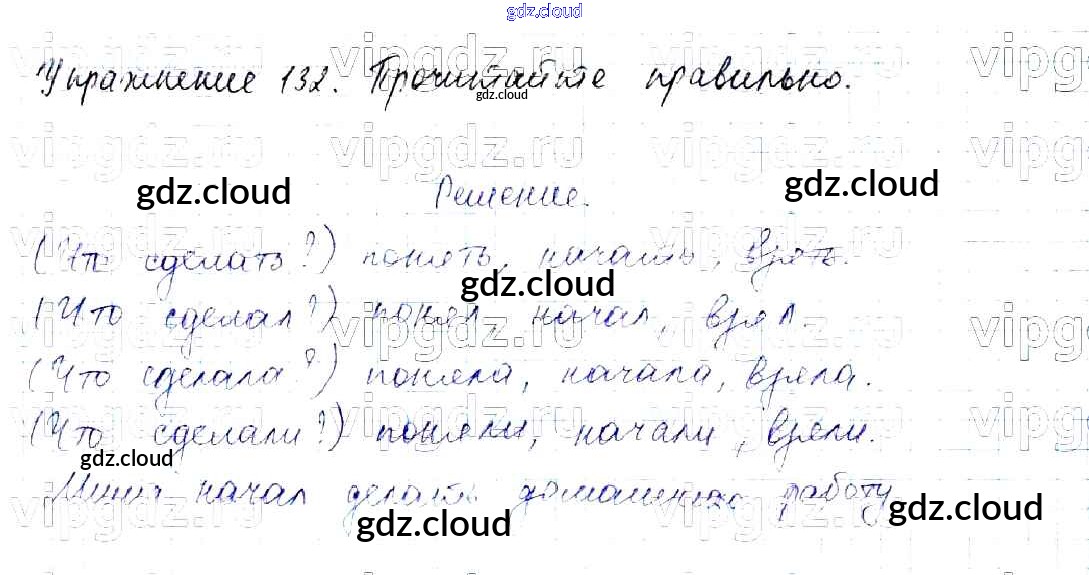 gdz.cloud
Упражнение 132. Прочитайте правильно.
gdz.cloud
vipgdz.ru vipgdz.ru
gdz.cloud gdz.cloud
Решение.
(Что сделать?) понять, начать, взять.
gdz.cloud
(Что сделал?) понял, начал, взял.
(Что сделала?) поняла, начала, взяла.
(Что сделали?) поняли, начали, взяли.
gdz.cloud
начал делать домашнюю работу
gdz.cloud gdz.cloud